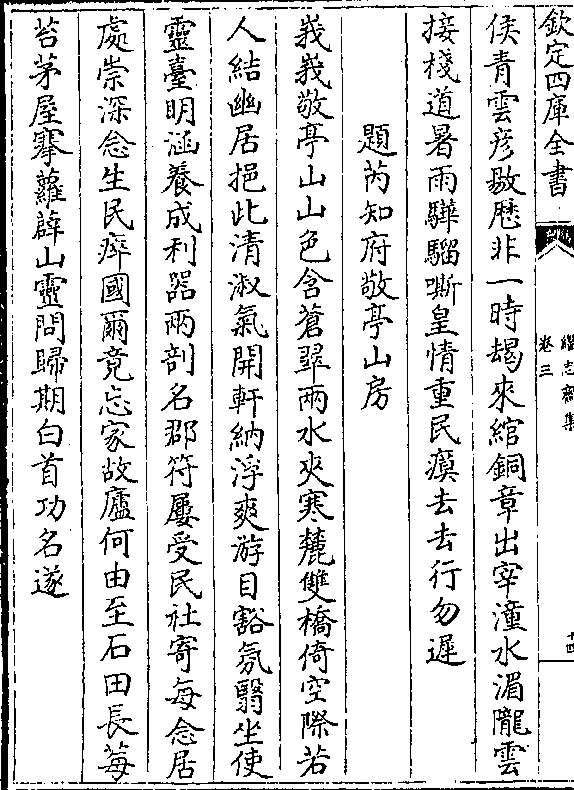 欽定四庫全書
繼志齋集
卷三
十四
侯青雲彦敭歴非一時朅來綰銅章出宰潼水湄隴雲
接棧道暑雨驊騮嘶皇情重民瘼去去行勿遲
題芮知府敬亭山房
峩峩敬亭山山色含蒼翠兩水夾寒麓雙橋倚空際若
人結幽居挹此清淑氣開軒納浮爽游目豁氛翳坐使
靈臺明涵養成利器兩剖名郡符屢受民社寄每念居
處崇深念生民瘁國爾竟忘家故廬何由至石田長莓
苔茅屋搴蘿薜山靈問歸期白首功名遂